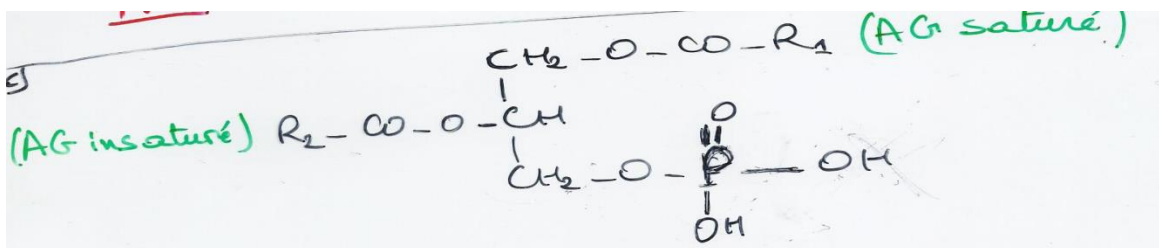 c)
CH2 - O - CO - R1 (AG saturé)
(AG insaturé) R2 - CO - O - CH
O
CH2 - O - P - OH
OH